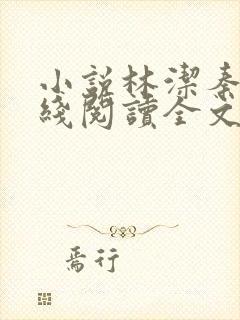 小說林潔秦
綫閱讀全文
焉行